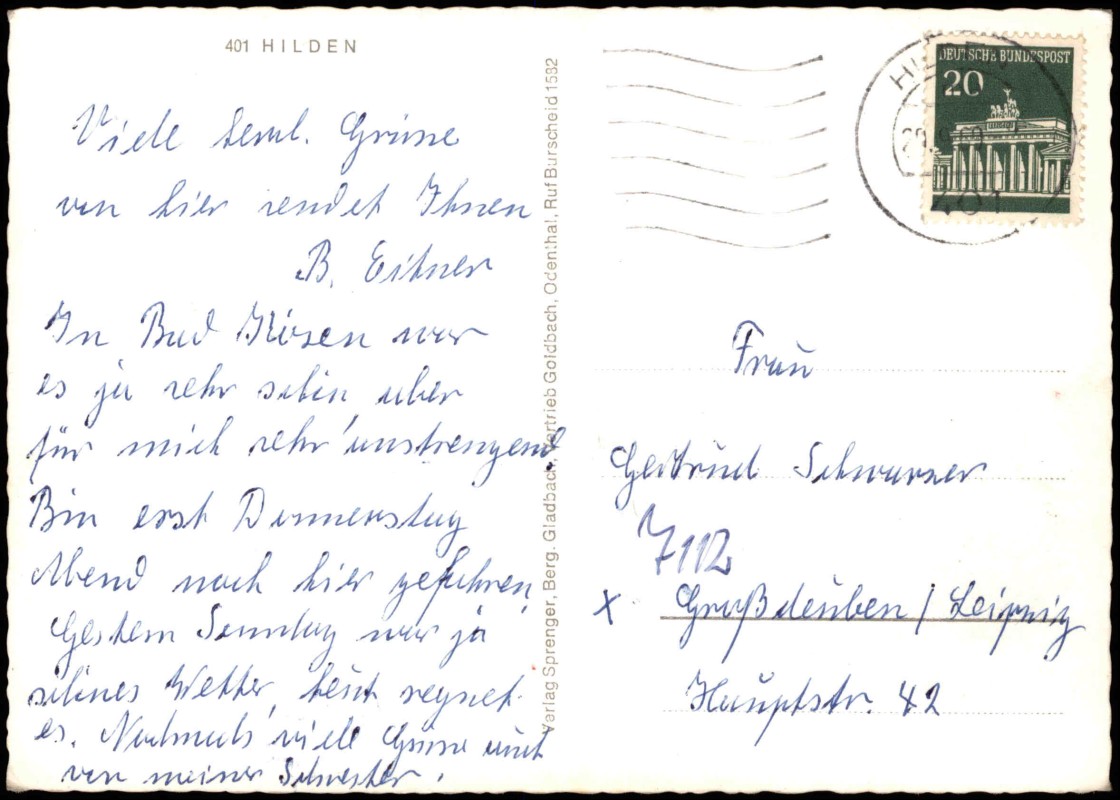 401 HILDEN
Viele herzl. Grüsse
von hier sendet Ihnen
B. Eitner
In Bad Kösen war
es ja sehr schön aber
für mich sehr anstrengend
Bin erst Donnerstag
Abend nach hier gefahren,
Gestern Sonntag war ja
schönes Wetter, heut regnet
es. Nochmals viele Grüsse auch
von meiner Schwester.
Verlag Sprenger, Berg. Gladbach, Vertrieb Goldbach, Odenthal, Ruf Burscheid 1582
DEUTSCHE BUNDESPOST
20
HILDEN
401
Frau
Gertrud Schwarzer
7112
x Großdeuben / Leipzig
Hauptstr. 42